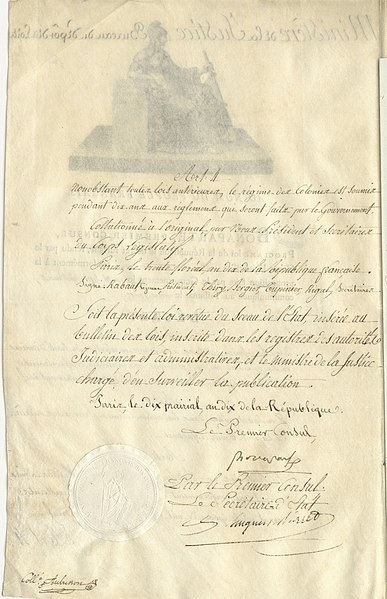 Art. 4
Nonobstant toutes lois antérieures, le régime des colonies est soumis
pendant dix ans aux règlements qui seront faits par le Gouvernement.
Collationné à l'original, par nous Président et Secrétaires
du Corps législatif
Paris, le trente floréal an dix de la République française
Signé Rabaut Président, Thiry, Bergier, Tupinier, Rigal, Secrétaires
Soit la présente loi revêtue du Sceau de l'Etat, insérée au
Bulletin des lois, inscrite dans les registres des autorités
Judiciaires et administratives, et le ministre de la Justice
chargé d'en surveiller la publication.
Paris, le dix prairial, an dix de la République.
Le Premier Consul
Bonaparte
Par le Premier Consul.
Le Secrétaire d'Etat
hugues b. maret
Ministère de la Justice
Bureau de dépôt des Lois